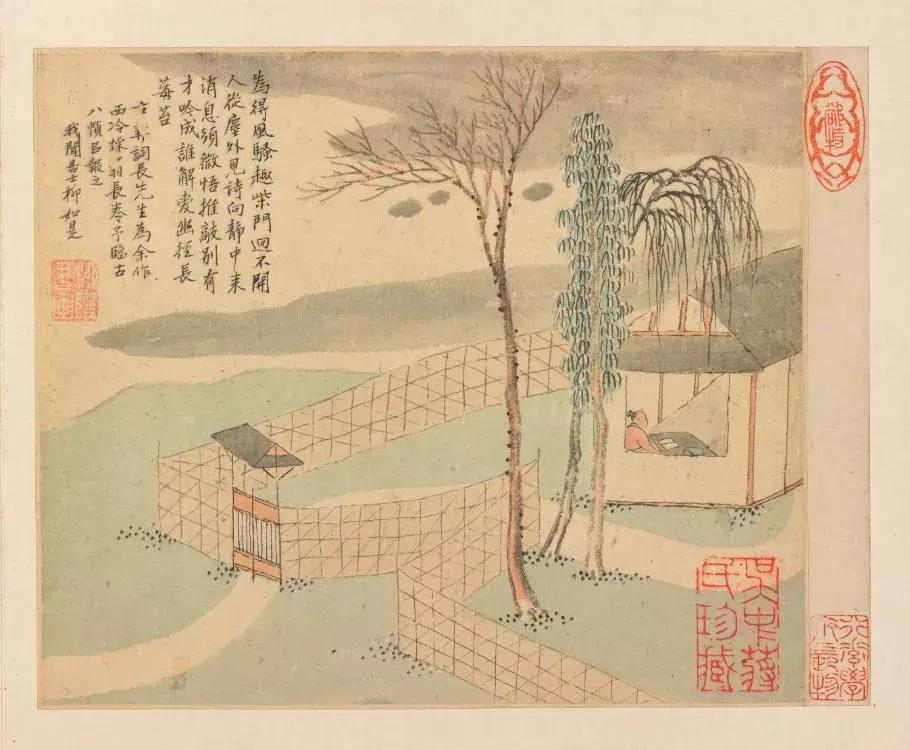 為得風騷趣柴門迥不開
人從塵外見詩向靜中来
消息須微悟推敲別有
才吟成誰解愛幽徑長
莓苔
詞長先生為余作
西泠採菊長卷予臨古
八幀以報之
我聞居士柳如是
吳中蔣
氏珍藏